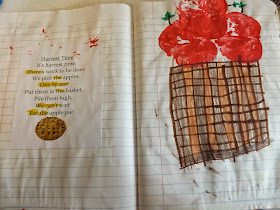 Harvest Time
It's harvest time,
There's work to be done
We pick the apples
One by one
Put them in the basket,
Pile them high,
We can't wait
For the apple pie!